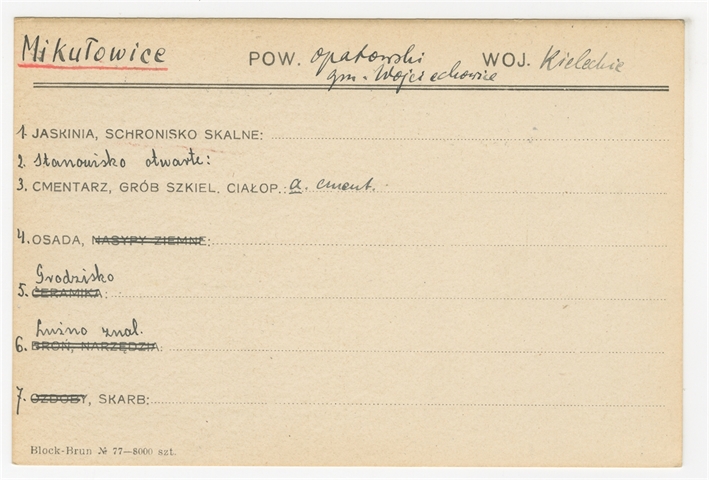 Mikułowice POW. opatowski WOJ. Kieleckie
gm. Wojciechowice
1. JASKINIA, SCHRONISKO SKALNE:
2. Stanowisko otwarte:
3. CMENTARZ, GRÓB SZKIEL. CIAŁOP. a. cment.
4. OSADA, NASYPY ZIEMNE:
Grodzisko
5. CERAMIKA:
Luźno znal.
6. BROŃ, NARZĘDZIA:
7. OZDOBY, SKARB:
Block-Brun № 77—8000 szt.